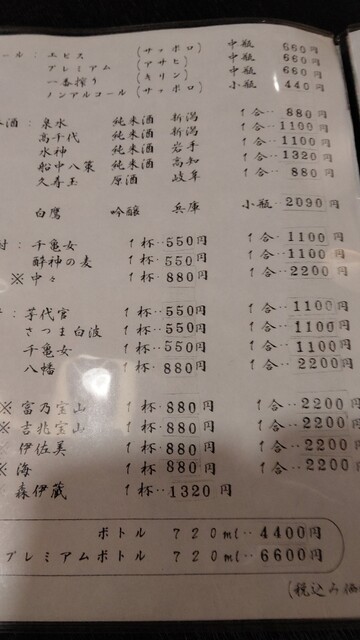 ール：エビス (サッポロ) 中瓶 660円
プレミアム (アサヒ) 中瓶 660円
一番搾り (キリン) 中瓶 660円
ノンアルコール (サッポロ) 小瓶 440円
酒：泉水 純米酒 新潟 1合‥880円
高千代 純米酒 新潟 1合‥1100円
水神 純米酒 岩手 1合‥1100円
船中八策 純米酒 高知 1合‥1320円
久寿玉 原酒 岐阜 1合‥880円
白鷹 吟醸 兵庫 小瓶‥2090円
千亀女 1杯‥550円 1合‥1100円
酔神の麦 1杯‥550円 1合‥1100円
※中々 1杯‥880円 1合‥2200円
芋代官 1杯‥550円 1合‥1100円
さつま白波 1杯‥550円 1合‥1100円
千亀女 1杯‥550円 1合‥1100円
八幡 1杯‥880円 1合‥2200円
※富乃宝山 1杯‥880円 1合‥2200円
※吉兆宝山 1杯‥880円 1合‥2200円
※伊佐美 1杯‥880円 1合‥2200円
※海 1杯‥880円 1合‥2200円
森伊蔵 1杯‥1320円
ボトル 720ml‥4400円
プレミアムボトル 720ml‥6600円
(税込み価